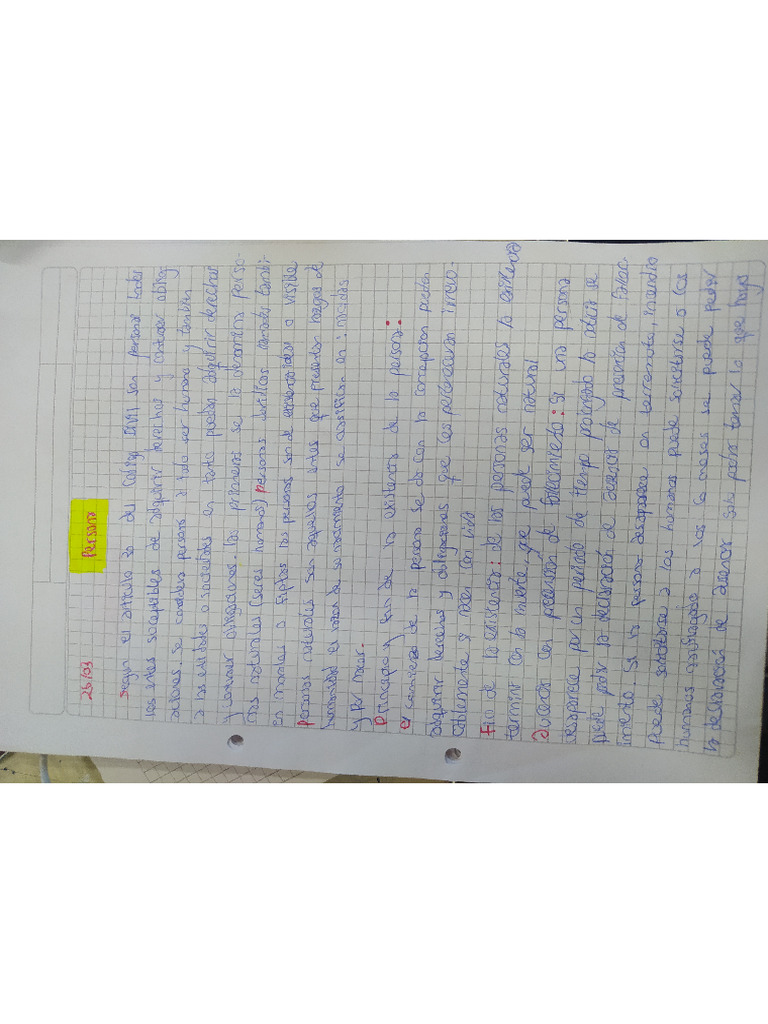 26/03
Persona
Segun el articulo 30 del Codigo Civil son personas todos
los entes susceptibles de adquirir derechos y contraer oblig-
aciones. Se considera persona a todo ser humano y tambien
a las entidades o sociedades en tanto puedan adquirir derechos
y contraer obligaciones. Las primeras se la denomina perso-
nas naturales (seres humanos) personas juridicas llamadas tambi-
en morales o fiptas las personas son de existencia ideal o visible
Personas naturales son aquellos entes que presentan rasgos de
humanidad el razon de su nacimiento se clasifican en: nacidas
y por nacer.
Principio y fin de la existencia de la persona:
El comienzo de la persona se da con la concepcion pueden
adquirir derechos y obligaciones que les pertenecieran irrevo-
cablemente si nacen con vida
Fin de la existencia: de las personas naturales la existencia
termina con la muerte, que puede ser natural
Ausencia con presuncion de fallecimiento: Si una persona
desaparece por un periodo de tiempo prolongado la noticia se
puede pedir la declaracion de ausencia de presuncion de fallec-
imiento. Si la persona desaparece en terremoto, incendio
Puede solicitarse a los humanos puede solicitarse a los
humanos naufragio a los 6 meses se puede pedir
la declaracion de ausencia para poder tomar lo que haya